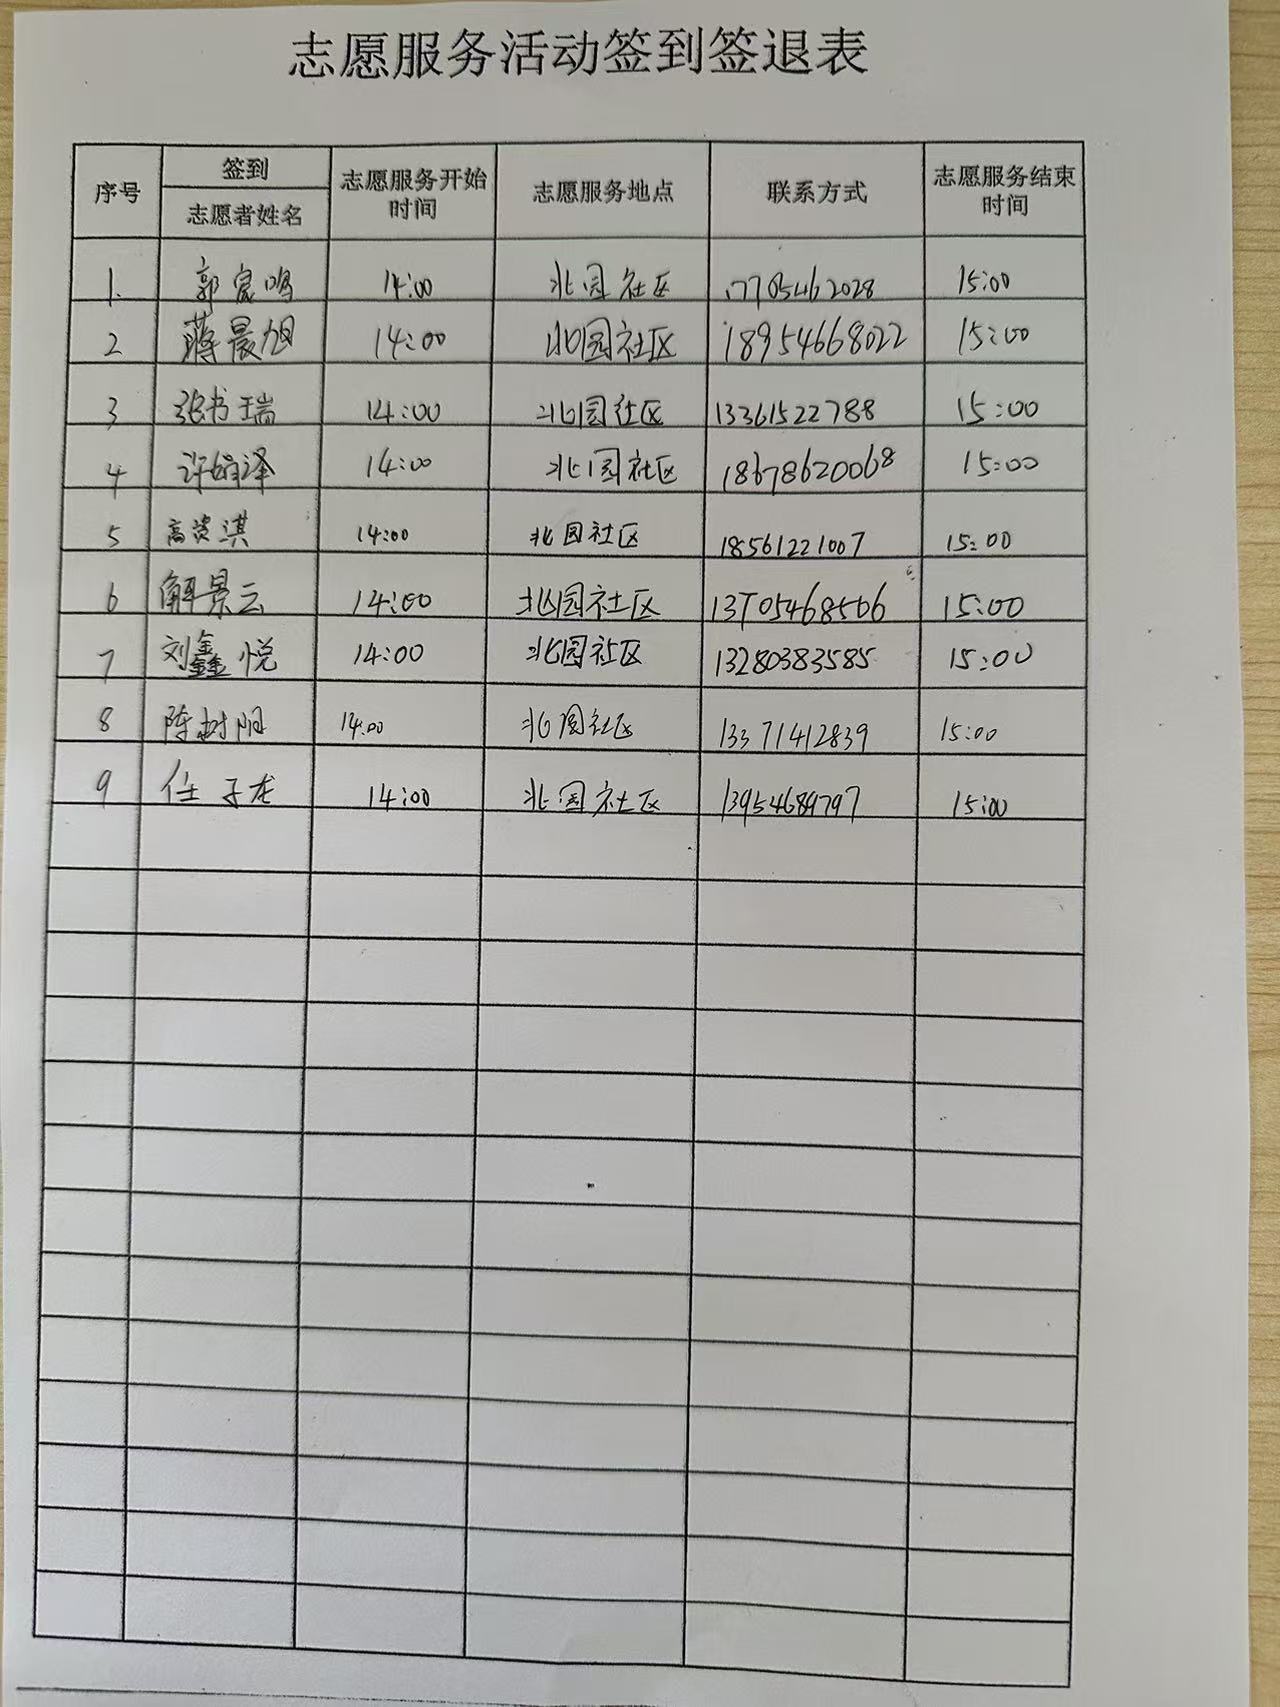 志愿服务活动签到签退表
序号 签到 志愿者姓名 志愿服务开始时间 志愿服务地点 联系方式 志愿服务结束时间
1. 郭宸鸣 14:00 北园社区 17705462028 15:00
2 蒋晨旭 14:00 北园社区 18954668022 15:00
3 张书瑞 14:00 北园社区 13361522788 15:00
4 许 泽 14:00 北园社区 18678620068 15:00
5 高 淇 14:00 北园社区 18561221007 15:00
6 解景云 14:00 北园社区 13705468506 15:00
7 刘鑫悦 14:00 北园社区 13280383585 15:00
8 陈树阳 14:00 北园社区 13371412839 15:00
9 任子龙 14:00 北园社区 13954689797 15:00